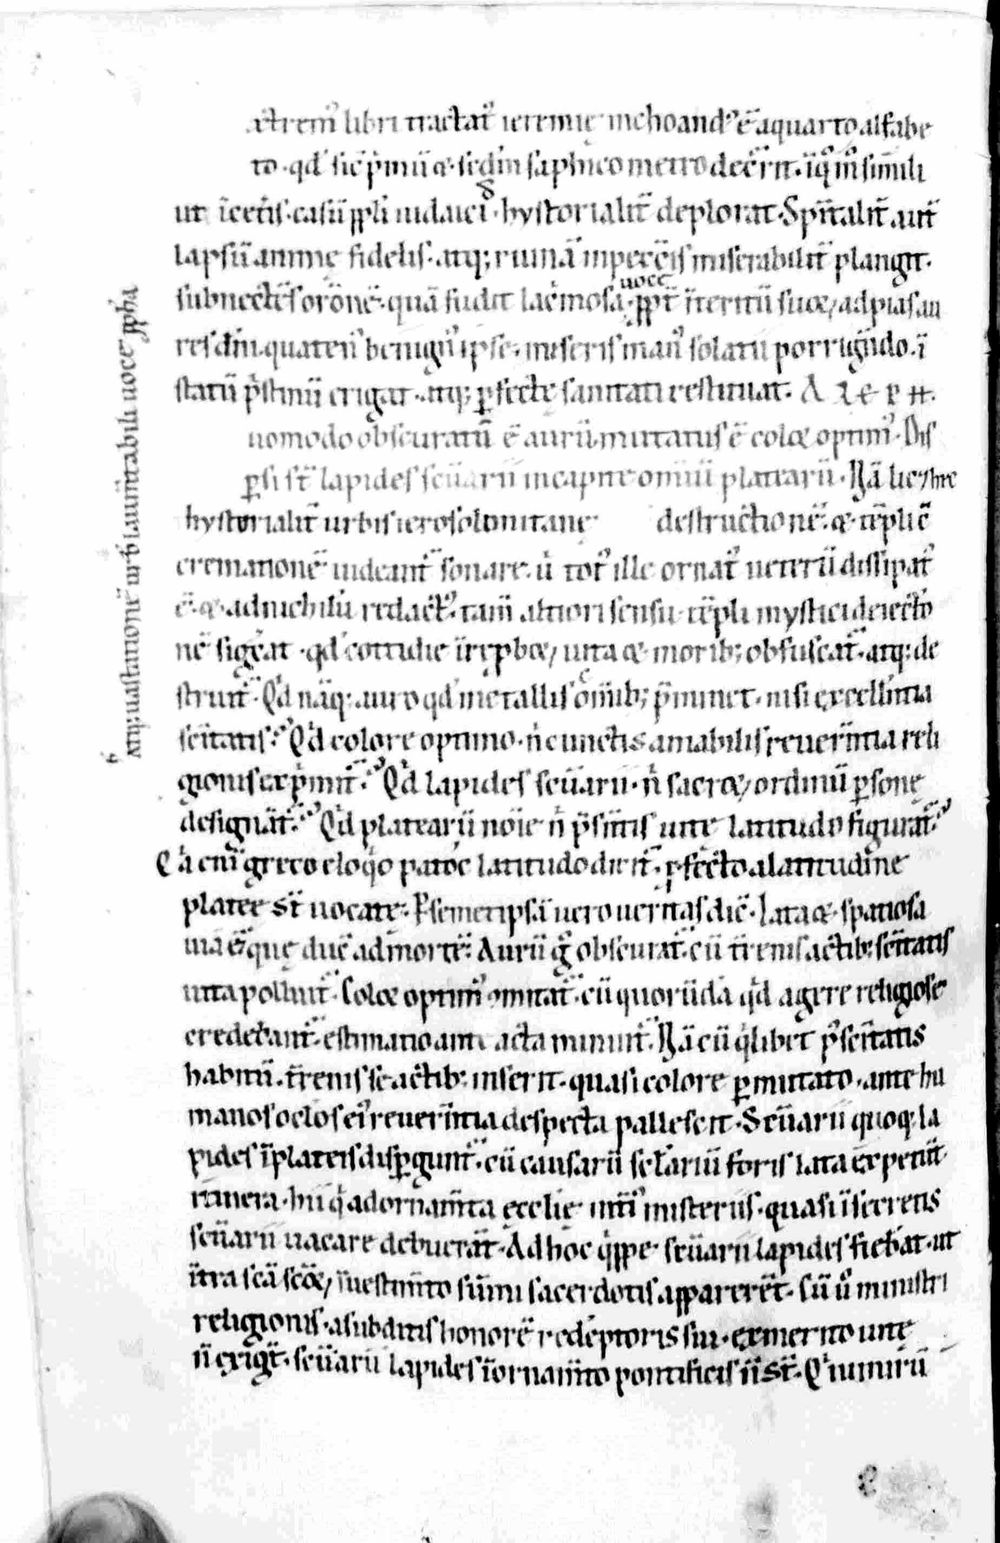 xtrem᷒ libri tractat᷒ ieremie inchoand᷒ ē a quarto alfabe
to · qd̓ sic̄ p̓mū & · sc̄dm̄ saphico metro dec̄rit · iq᷒ m̄ simili
ut īcet̄is · casū ꝓpli iudaici · hystorialit̄ deplorat · Spīt̄alit̄ aut̄
lapsū anime fidelis · atq; ruinā in pecc̄is miserabilit̄ plangit ·
subnect̄es orōnē · quā fudit lac̄mosa uoce · ꝓp̄t īteritū suæ / ad pias au
res dn̄i · quaten᷒ benign᷒ ipse · miseris man᷒ solatii porrigēdo · ī
statū p̓stinū erigat · atq; ꝑfecte sanitati restituat · A L E P H ·
uomodo obscuratū ē aurū · mutatus ē color optim᷒ · Dis
ꝑsi st̄ lapides sc̄uarii in capite omniū platearū · Nā licet hec
hystorialit̄ urbis ierosolimitane destructionē · & tēpli c̄
cremationē uideant̄ sonare · ū tot᷒ ille ornat᷒ ueterū dissipat᷒
ē · & ad nichilū redact᷒ · tam̄ altiori sensu tēpli mystici deiectō
nē sig̓cat · qd̓ cottidie ī rep̓bæ / uita & morib; obfuscat̄ · atq; de
struit̄ · Qd̓ nāq; auro qd̓ metallis om̄ib; p̄minet · nisi excellētia
sc̄itatis · Qd̓ colore optimo · n̄ cunctis amabilis reuerētia reli
gionis exp̓mit̄ · Qd̓ lapides sc̄uarii · n̄ sacræ / ordinū ꝑsone
designāt̄ · Qd̓ platearū noīe n̄ p̄sētis uite latitudo figurat̄ ·
Q̓a eni᷒ greco eloq̓o patos latitudo dicit̄ · ꝓfecto a latitudine
platee st̄ uocate · P semetipsā uero ueritas dic̄ · Lata & spatiosa
uia ē que duc̄ ad mortē · Aurū g̓ obscurat̄ · cū t̄renis actib; sc̄itatis
uita polluit̄ · Color optim᷒ ōmutat̄ · cū quorūdā qd̓ agere religiose
credebant̄ · estimatio ante acta minuit̄ · Nā cū q̓libet p̄ sc̄itatis
habitū · t̄renis se actib; inserit · quasi colore ꝑmutato · ante hu
manos oclos ei᷒ reuerētia despecta pallescit · Sc̄uarii quoq; la
pides ī plateis disꝑgunt̄ · cū causarū sc̄lariū foris lata expetūt
itinera · hii q̓ ad ornam̄ta ecclie int̄nis misteriis · quasi ī secretis
sc̄uarii uacare debuerāt · Ad hoc q̓ppe sc̄uarii lapides fiebāt · ut
īt̄ra sc̄ā sc̄oæ / ī uestimēto sūmi sacerdotis apparerēt · Cū u᷒ ministri
religionis · a subditis honorē redēptoris sui · ex merito uite
n̄ exig̓t · sc̄uarii lapides ī ornamēto pontificis n̄ st̄ · Q̓ nimirū
Atq; uastationē urb̄ lamītabili uoce ꝓphā